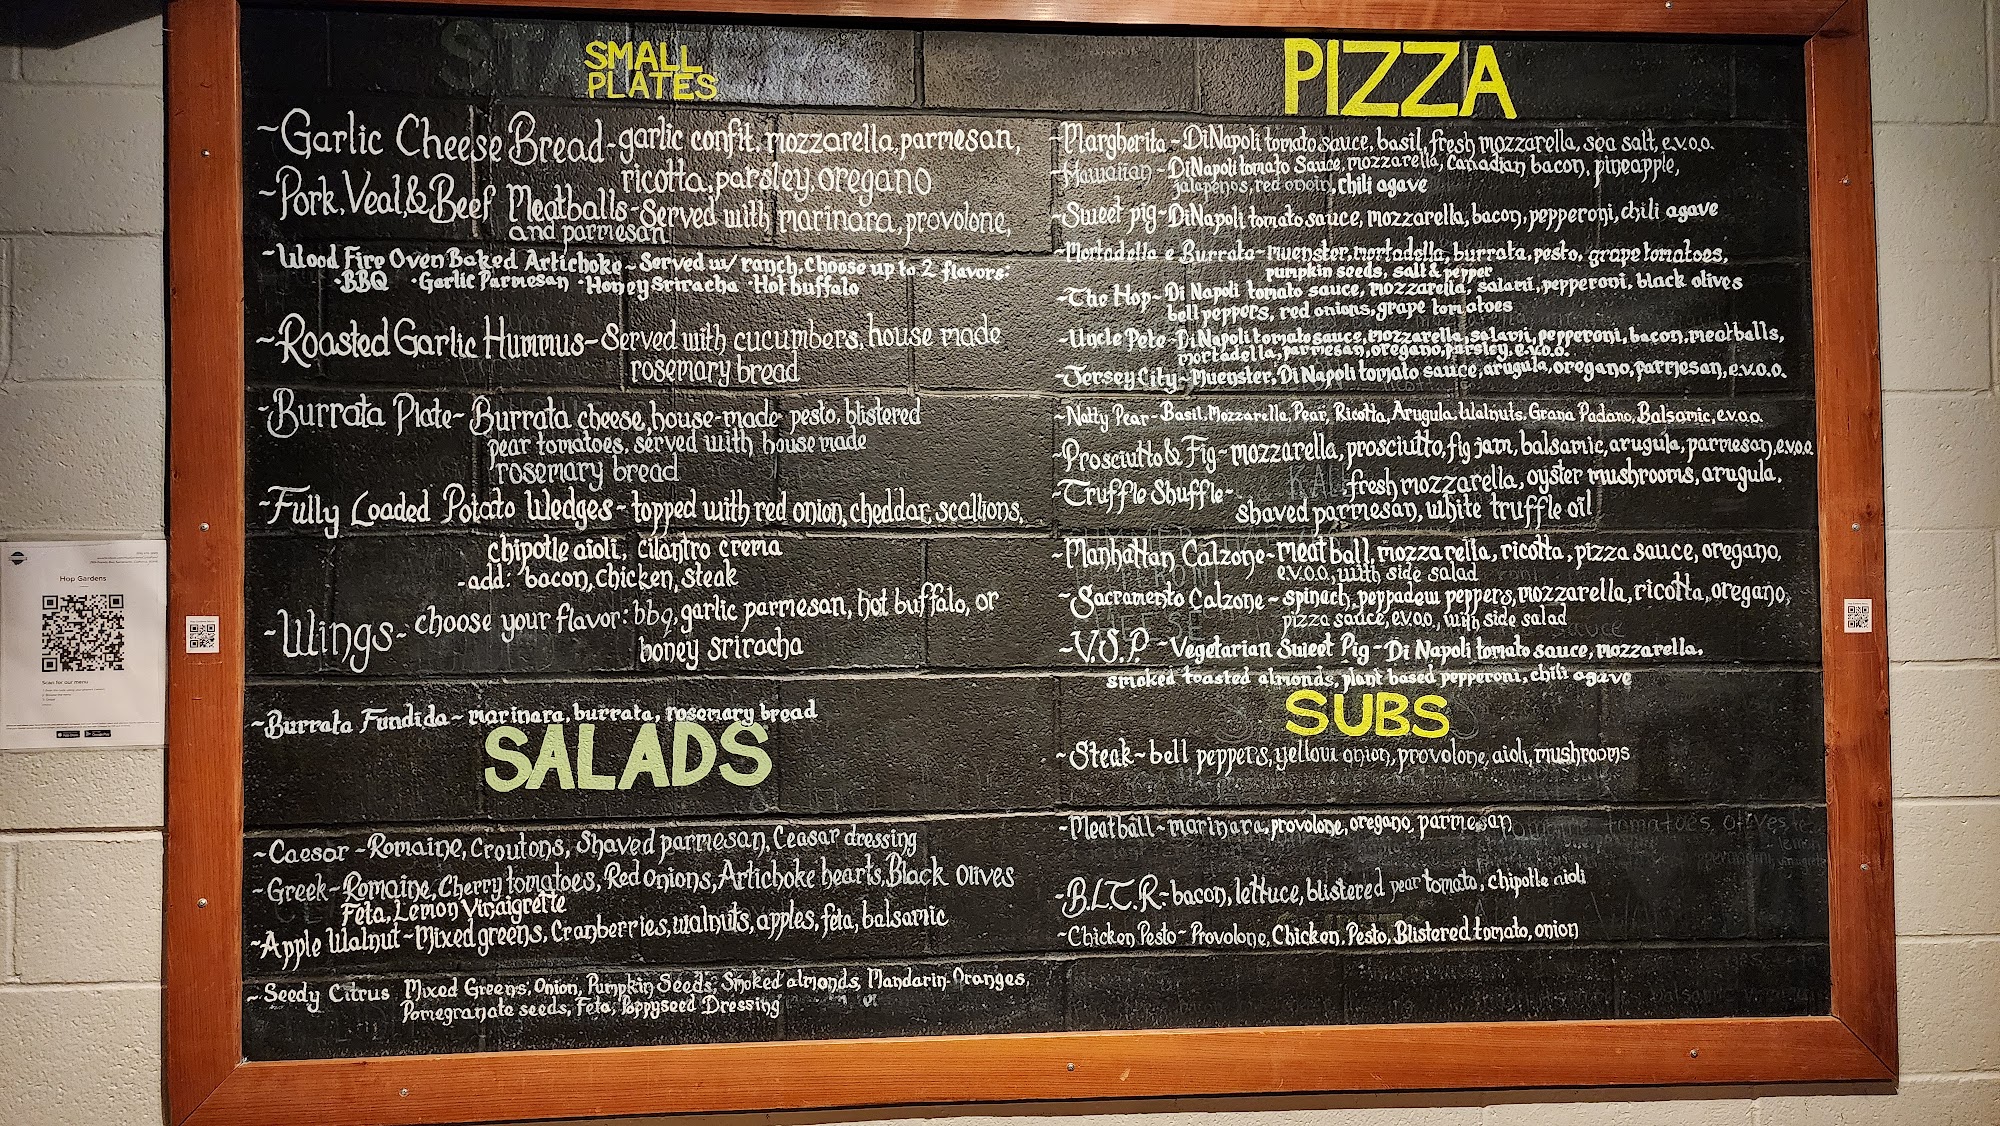 SMALL
PLATES
~Garlic Cheese Bread-garlic confit, mozzarella, parmesan,
ricotta, parsley, oregano
~Pork, Veal, & Beef Meatballs-Served with marinara, provolone,
and parmesan
~Wood Fire Oven Baked Artichoke~Served w/ ranch. Choose up to 2 flavors:
·BBQ ·Garlic Parmesan ·Honey Sriracha ·Hot buffalo
~Roasted Garlic Hummus-Served with cucumbers, house made
rosemary bread
~Burrata Plate-Burrata cheese, house-made pesto, blistered
pear tomatoes, served with house made
rosemary bread
~Fully Loaded Potato Wedges-topped with red onion, cheddar, scallions,
chipotle aioli, cilantro crema
-add: bacon, chicken, steak
~Wings-choose your flavor: bbq, garlic parmesan, hot buffalo, or
honey sriracha
~Burrata Fundida~marinara, burrata, rosemary bread
SALADS
~Caesar-Romaine, Croutons, Shaved parmesan, Ceasar dressing
~Greek-Romaine, Cherry tomatoes, Red onions, Artichoke hearts, Black Olives
Feta, Lemon Vinaigrette
~Apple Walnut-Mixed greens, Cranberries, walnuts, apples, feta, balsamic
~Seedy Citrus Mixed Greens, Onion, Pumpkin Seeds, Smoked almonds, Mandarin-Oranges,
Pomegranate seeds, Feta, Poppyseed Dressing
PIZZA
~Margherita-DiNapoli tomato sauce, basil, fresh mozzarella, sea salt, e.v.o.o.
~Hawaiian-DiNapoli tomato Sauce, mozzarella, Canadian bacon, pineapple,
jalapeños, red onoin, chili agave
~Sweet pig-DiNapoli tomato sauce, mozzarella, bacon, pepperoni, chili agave
~Mortadella e Burrata-muenster, mortadella, burrata, pesto, grape tomatoes,
pumpkin seeds, salt & pepper
~The Hop-Di Napoli tomato sauce, mozzarella, salami, pepperoni, black olives
bell peppers, red onions, grape tomatoes
~Uncle Pete-DiNapoli tomato sauce, mozzarella, salami, pepperoni, bacon, meatballs,
mortadella, parmesan, oregano, parsley, e.v.o.o.
~Jersey City~Muenster, DiNapoli tomato sauce, arugula, oregano, parmesan, e.v.o.o.
~Natty Pear-Basil, Mozzarella, Pear, Ricotta, Arugula, Walnuts, Grana Padano, Balsamic, e.v.o.o.
~Prosciutto & Fig-mozzarella, prosciutto, fig jam, balsamic, arugula, parmesan, e.v.o.o.
~Truffle Shuffle-fresh mozzarella, oyster mushrooms, arugula,
shaved parmesan, white truffle oil
~Manhattan Calzone-meatball, mozzarella, ricotta, pizza sauce, oregano,
e.v.o.o, with side salad
~Sacramento Calzone-spinach, peppadew peppers, mozzarella, ricotta, oregano,
pizza sauce, e.v.o.o., with side salad
~V.S.P-Vegetarian Sweet Pig-Di Napoli tomato sauce, mozzarella,
smoked toasted almonds, plant based pepperoni, chili agave
SUBS
~Steak-bell peppers, yellow onion, provolone, aioli, mushrooms
~Meatball-marinara, provolone, oregano, parmesan
~B.L.T.R.-bacon, lettuce, blistered pear tomato, chipotle aioli
~Chicken Pesto-Provolone, Chicken, Pesto, Blistered tomato, onion
Hop Gardens
Scan for our menu